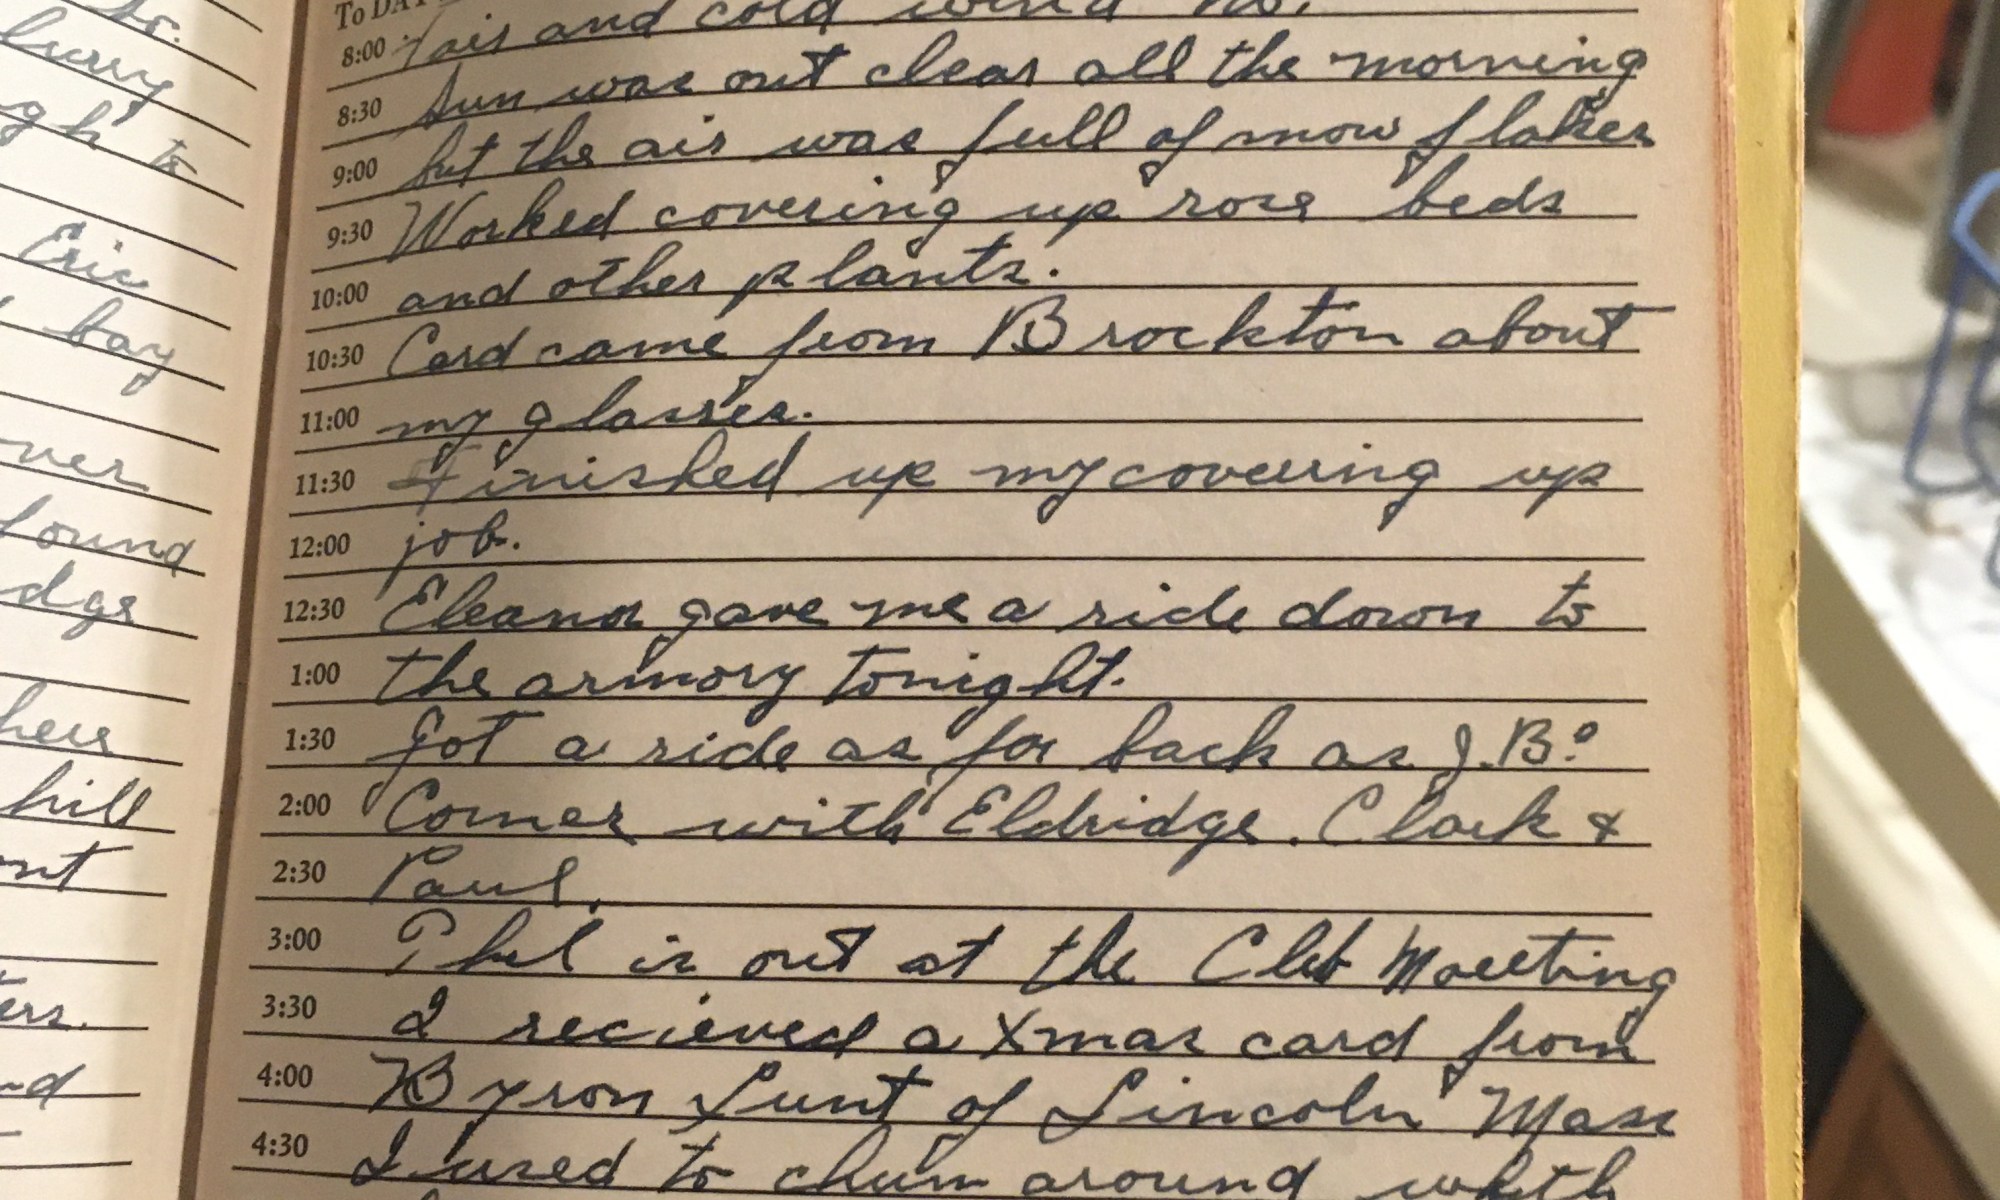 to.
hurry
gh to
Eric
bay
ner
found
dge
here
hill
nt
ers.
nd
To DA
8:00 Fair and cold wind No.
8:30 Sun was out clear all the morning
9:00 but the air was full of snow flakes
9:30 Worked covering up rose beds
10:00 and other plants.
10:30 Card came from Brockton about
11:00 my glasses.
11:30 Finished up my covering up
12:00 job.
12:30 Eleanor gave me a ride down to
1:00 the armory tonight.
1:30 Got a ride as far back as J.B.s
2:00 Corner with Eldridge. Clark &
2:30 Paul.
3:00 Phil is out at the Club Meeting
3:30 I recieved a Xmas card from
4:00 Byron Lunt of Lincoln Mass
4:30 I used to chum around with